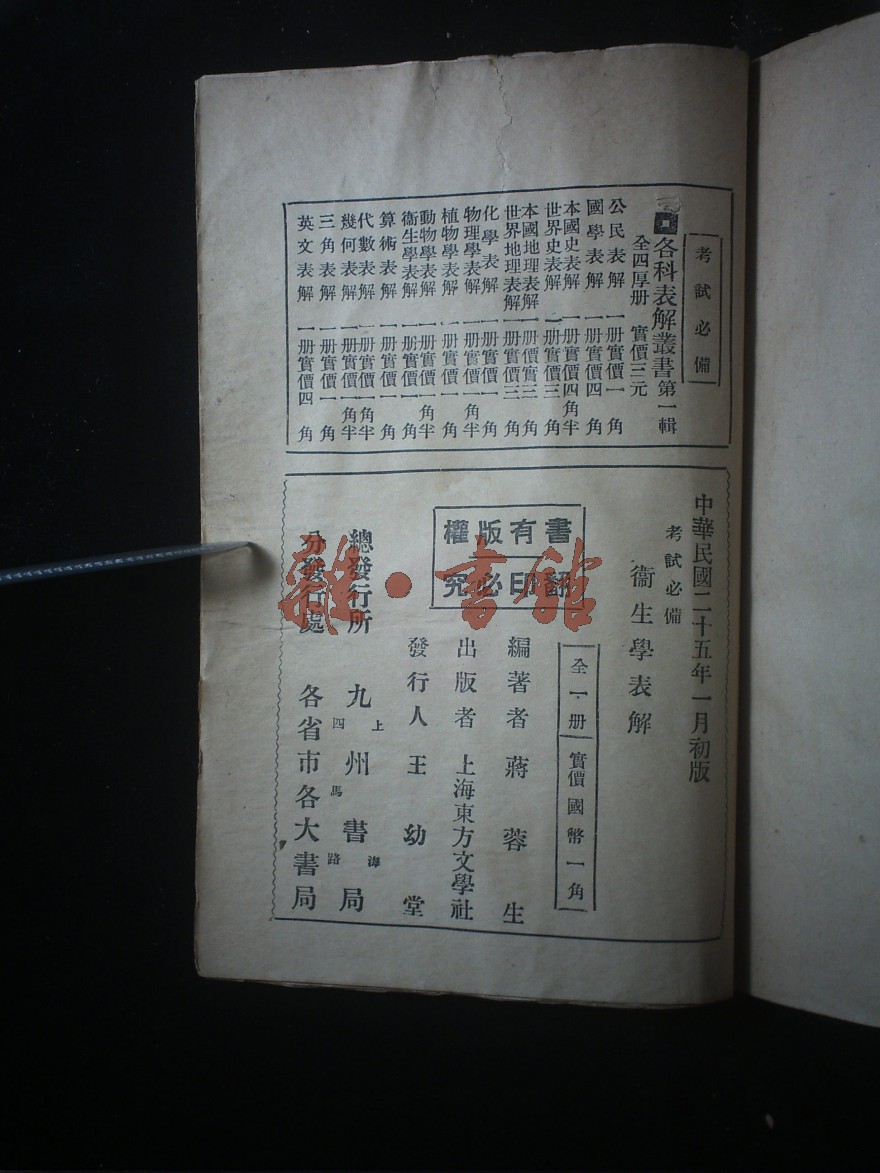 考試必備
各科表解叢書第一輯
全四厚册 實價三元
公民表解 一册實價一角
國學表解 一册實價四角
本國史表解 一册實價四角半
世界史表解 一册實價三角
本國地理表解 一册實價三角
世界地理表解 一册實價三角
化學表解 一册實價一角
物理學表解 一册實價一角半
植物學表解 一册實價一角
動物學表解 一册實價一角半
衞生學表解 一册實價一角
算術表解 一册實價一角
代數表解 一册實價一角半
幾何表解 一册實價一角半
三角表解 一册實價一角
英文表解 一册實價四角
中華民國二十五年一月初版
考試必備
衞生學表解
全一册 實價國幣一角
書有版權
翻印必究
編著者 蔣蓉生
出版者 上海東方文學社
發行人 王幼堂
總發行所 九州書局
上海四馬路
分發行處 各省市各大書局
雜·書館